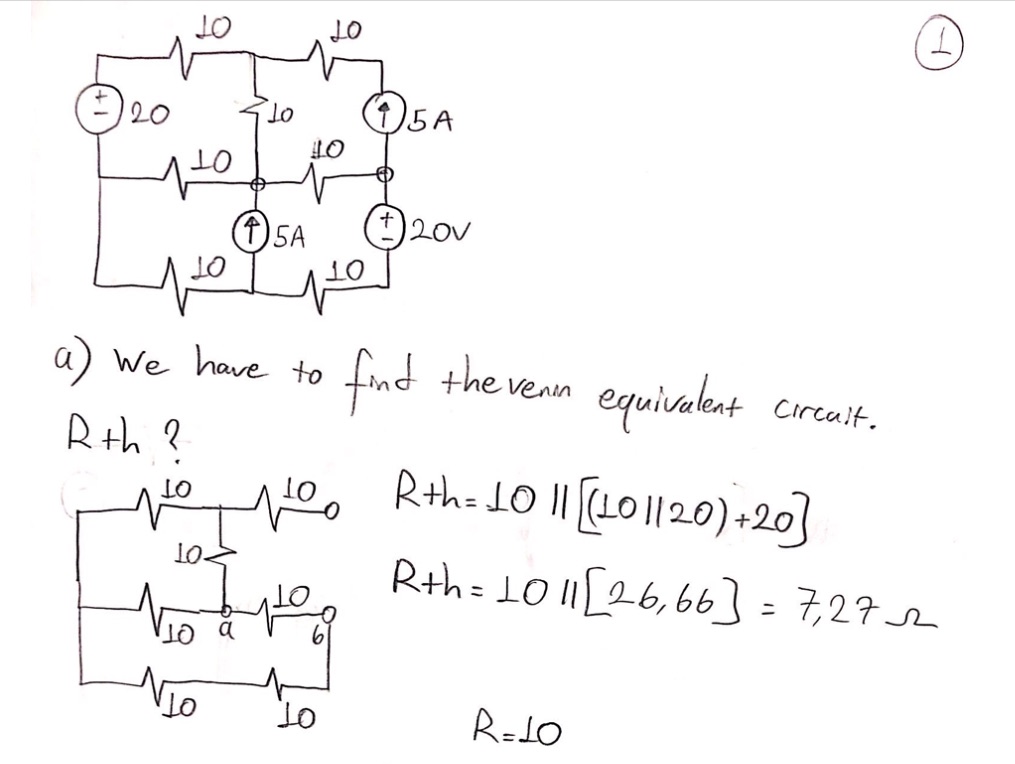 1
10 10
+ - 20 10 ↑ 5A
10 10
↑ 5A + - 20V
10 10
a) We have to find thevenin equivalent circuit.
Rth ?
10 10
10
10 a 10 b
10 10
Rth = 10 || [(10||20)+20]
Rth = 10 || [26,66] = 7,27 Ω
R=10